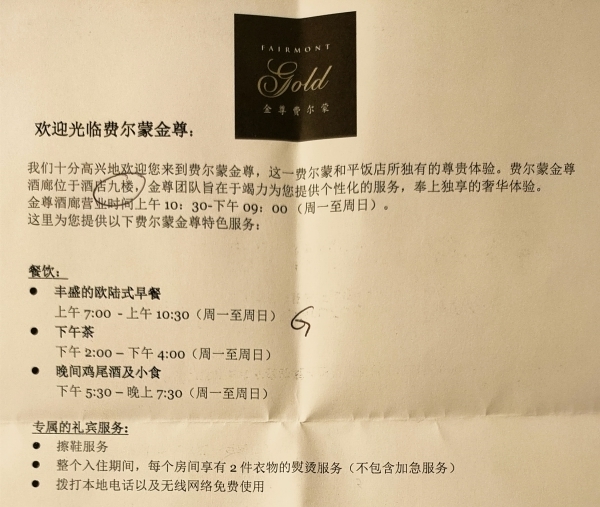 FAIRMONT
Gold
金尊费尔蒙
欢迎光临费尔蒙金尊：
我们十分高兴地欢迎您来到费尔蒙金尊，这一费尔蒙和平饭店所独有的尊贵体验。费尔蒙金尊
酒廊位于酒店九楼，金尊团队旨在于竭力为您提供个性化的服务，奉上独享的奢华体验。
金尊酒廊营业时间上午 10：30-下午 09：00（周一至周日）。
这里为您提供以下费尔蒙金尊特色服务：
餐饮：
● 丰盛的欧陆式早餐
上午 7:00 - 上午 10:30（周一至周日）
● 下午茶
下午 2:00 – 下午 4:00（周一至周日）
● 晚间鸡尾酒及小食
下午 5:30 – 晚上 7:30（周一至周日）
专属的礼宾服务：
● 擦鞋服务
● 整个入住期间，每个房间享有 2 件衣物的熨烫服务（不包含加急服务）
● 拨打本地电话以及无线网络免费使用